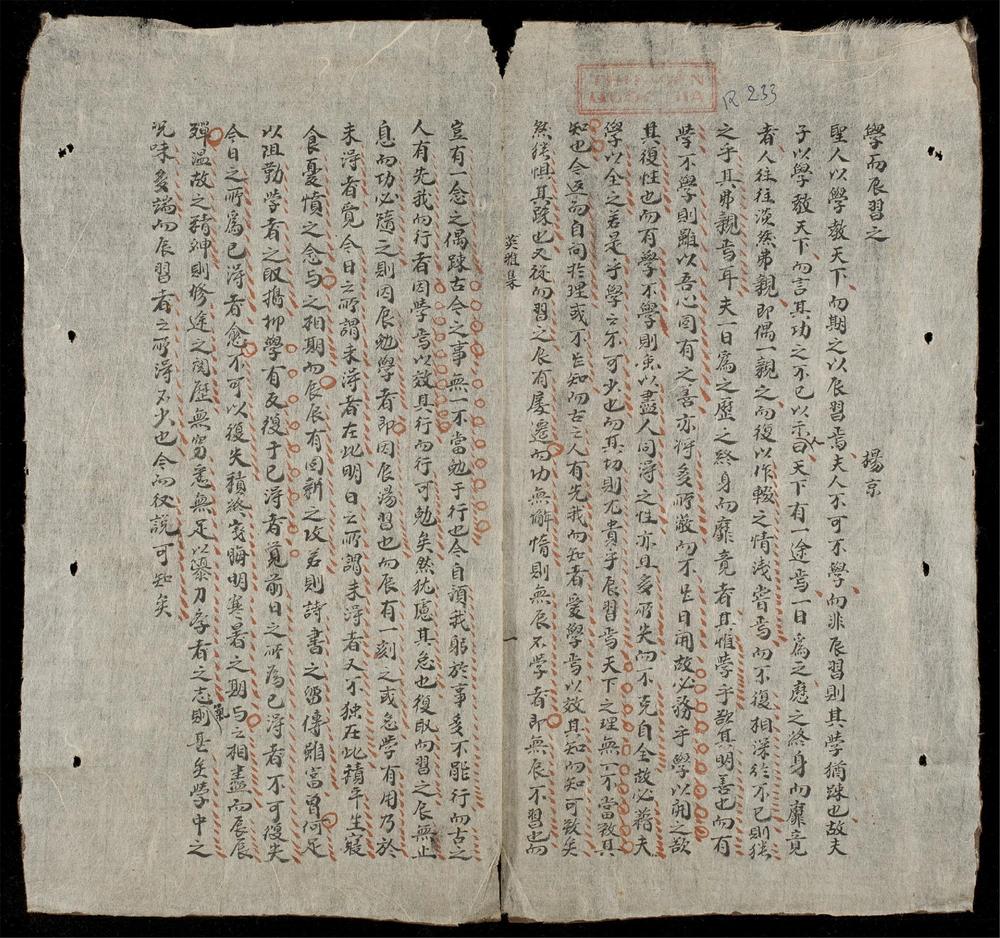 R 233
學而辰習之 揚京
聖人以學教天下而期之以辰習焉夫人不可不學而非辰習則其學猶踈也故夫
子以學教天下而言其功之不已以示曰天下有一途焉一日為之歷之終身而靡竟
者人往往淡然弗親即偶一親之而復以作輟之情淺嘗焉而不復相深於不已則猶
之乎其弗親焉耳夫一日為之歷之終身而靡竟者其惟學乎欲其明善也而有
學不學則雖以吾心固有之善亦將多所蔽而不克日開故必務乎學以開之欲
其復性也而有學不學則雖以盡人同得之性亦且多所失而不克自全故必藉夫
學以全之若是乎學之不可少也而其功則尤貴乎辰習焉天下之理無一不當致其
知也今返而自問於理或不知而古之人有先我而知者爰學焉以效其知而知可致矣
然猶惧其踈也又從而習之辰有屡遷而功無懈惰則無辰不學者即無辰不習也而
英雅集
一
豈有一念之偶踈古今之事無一不當勉于行也今自須我躬於事多不能行而古之
人有先我而行者因學焉以效其行而行可勉矣然犹慮其怠也復取而習之辰無止
息而功必隨之則因辰勉學者即因辰溫習也而辰有一刻之或怠學有用乃於
未得者覺今日之所謂未得者在此明日之所謂未得者又不独在此積平生寢
食憂憤之念与之相期而辰辰有回新之攻若則詩書之留傳雖富曾何足
以阻勤學者之取携抑學有反復于已得者覓前日之所為已得者不可復失
今日之所為已得者愈不可以復失積終歲晦明寒暑之期与之相盡而辰辰
殫溫故之精神則修途之閱歷無窮悉無足以瀠力學者之志氣則甚矣學中之
况味多端而辰習者之所得不少也今而後説可知矣